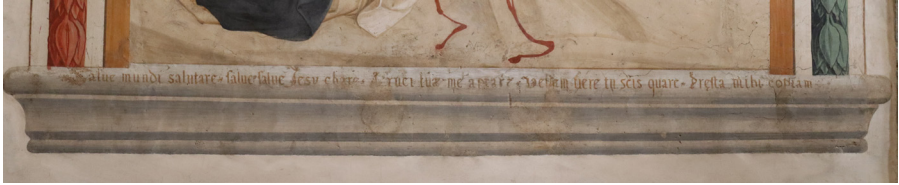 Salue mundi salutare · salue salue Iesu chare · Cruci tue me aptare · Vellem uere tu scis quare · Presta mihi copiam